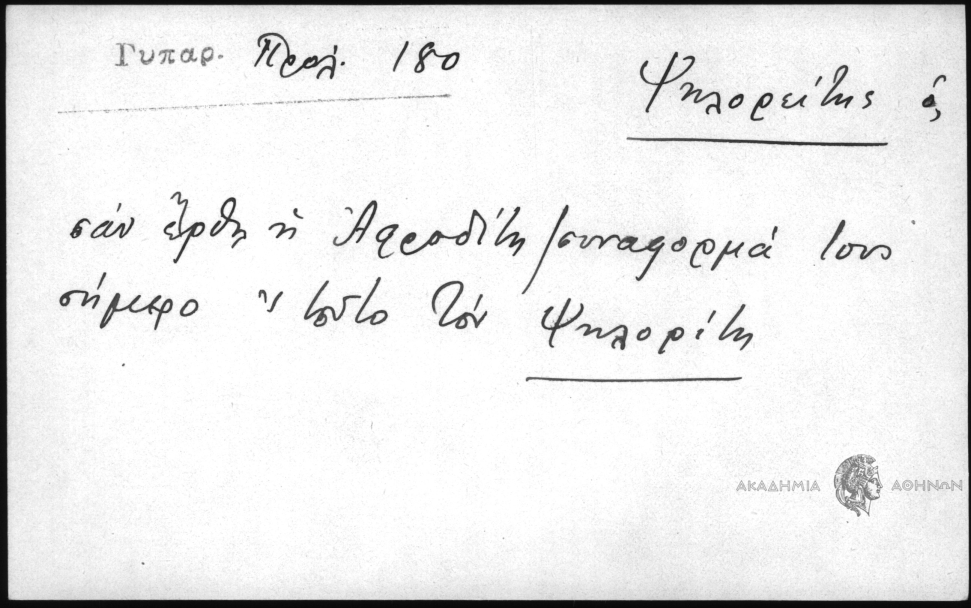 Γυπαρ. Πρόλ. 180
Ψηλορείτης ὁ,
σάν ἔρθη ἡ Ἀφροδίτη / συναφορμά τους
σήμερο 's τοῦτο τόν Ψηλορίτη
ΑΚΑΔΗΜΙΑ ΑΘΗΝΩΝ